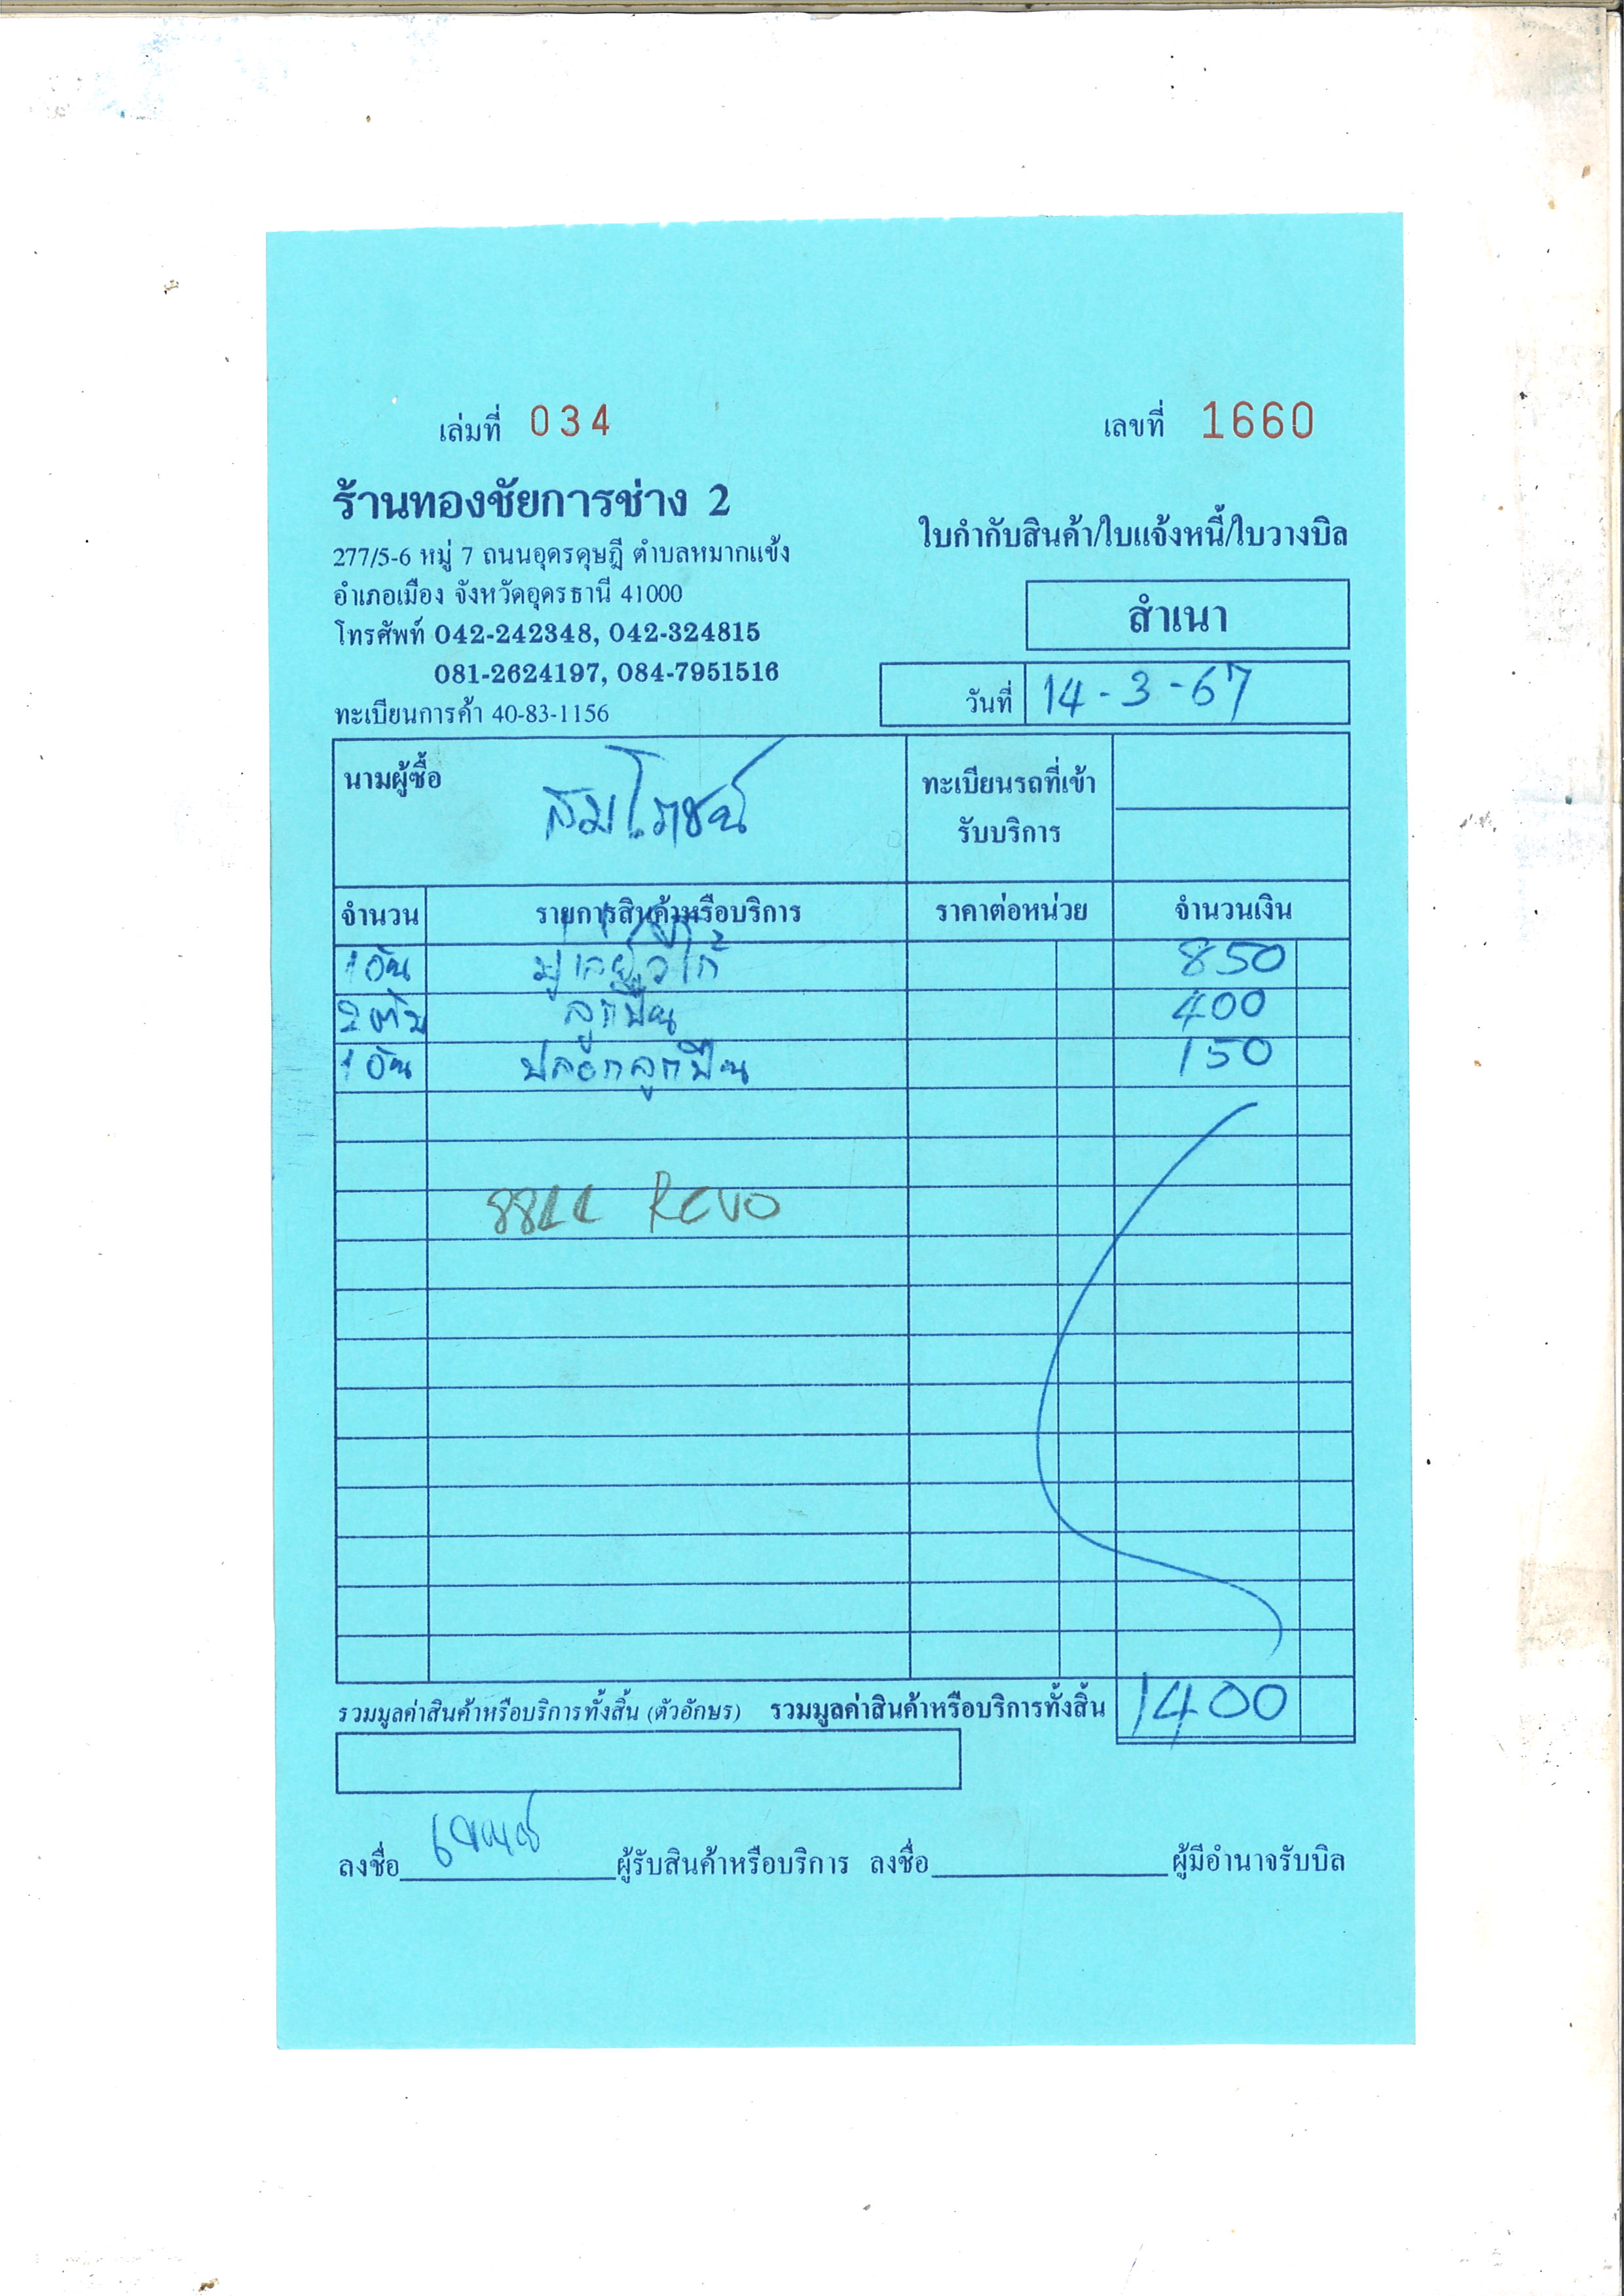 เล่มที่ 034
เลขที่ 1660
ร้านทองชัยการช่าง 2
277/5-6 หมู่ 7 ถนนอุดรดุษฎี ตำบลหมากแข้ง
อำเภอเมือง จังหวัดอุดรธานี 41000
โทรศัพท์ 042-242348, 042-324815
081-2624197, 084-7951516
ทะเบียนการค้า 40-83-1156
ใบกำกับสินค้า/ใบแจ้งหนี้/ใบวางบิล
สำเนา
วันที่ 14-3-67
นามผู้ซื้อ สมโภชน์
ทะเบียนรถที่เข้า
รับบริการ
จำนวน รายการสินค้าหรือบริการ ราคาต่อหน่วย จำนวนเงิน
1 อัน 850
2 ตับ ลูกปืน 400
1 อัน ปลอกลูกปืน 150
REVO
รวมมูลค่าสินค้าหรือบริการทั้งสิ้น (ตัวอักษร) รวมมูลค่าสินค้าหรือบริการทั้งสิ้น 1400
ลงชื่อ ผู้รับสินค้าหรือบริการ ลงชื่อ ผู้มีอำนาจรับบิล